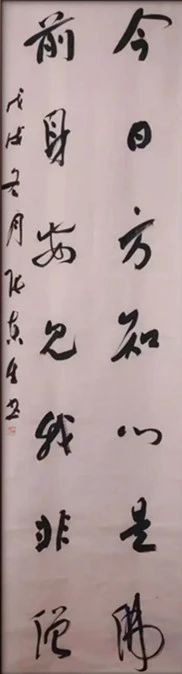 今日方知心是佛
前身安见我非僧
戊戌冬月张喜生书